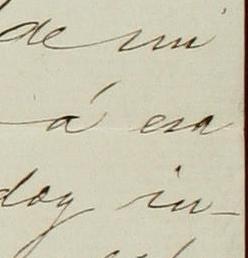 de mi
á esa
doy in-